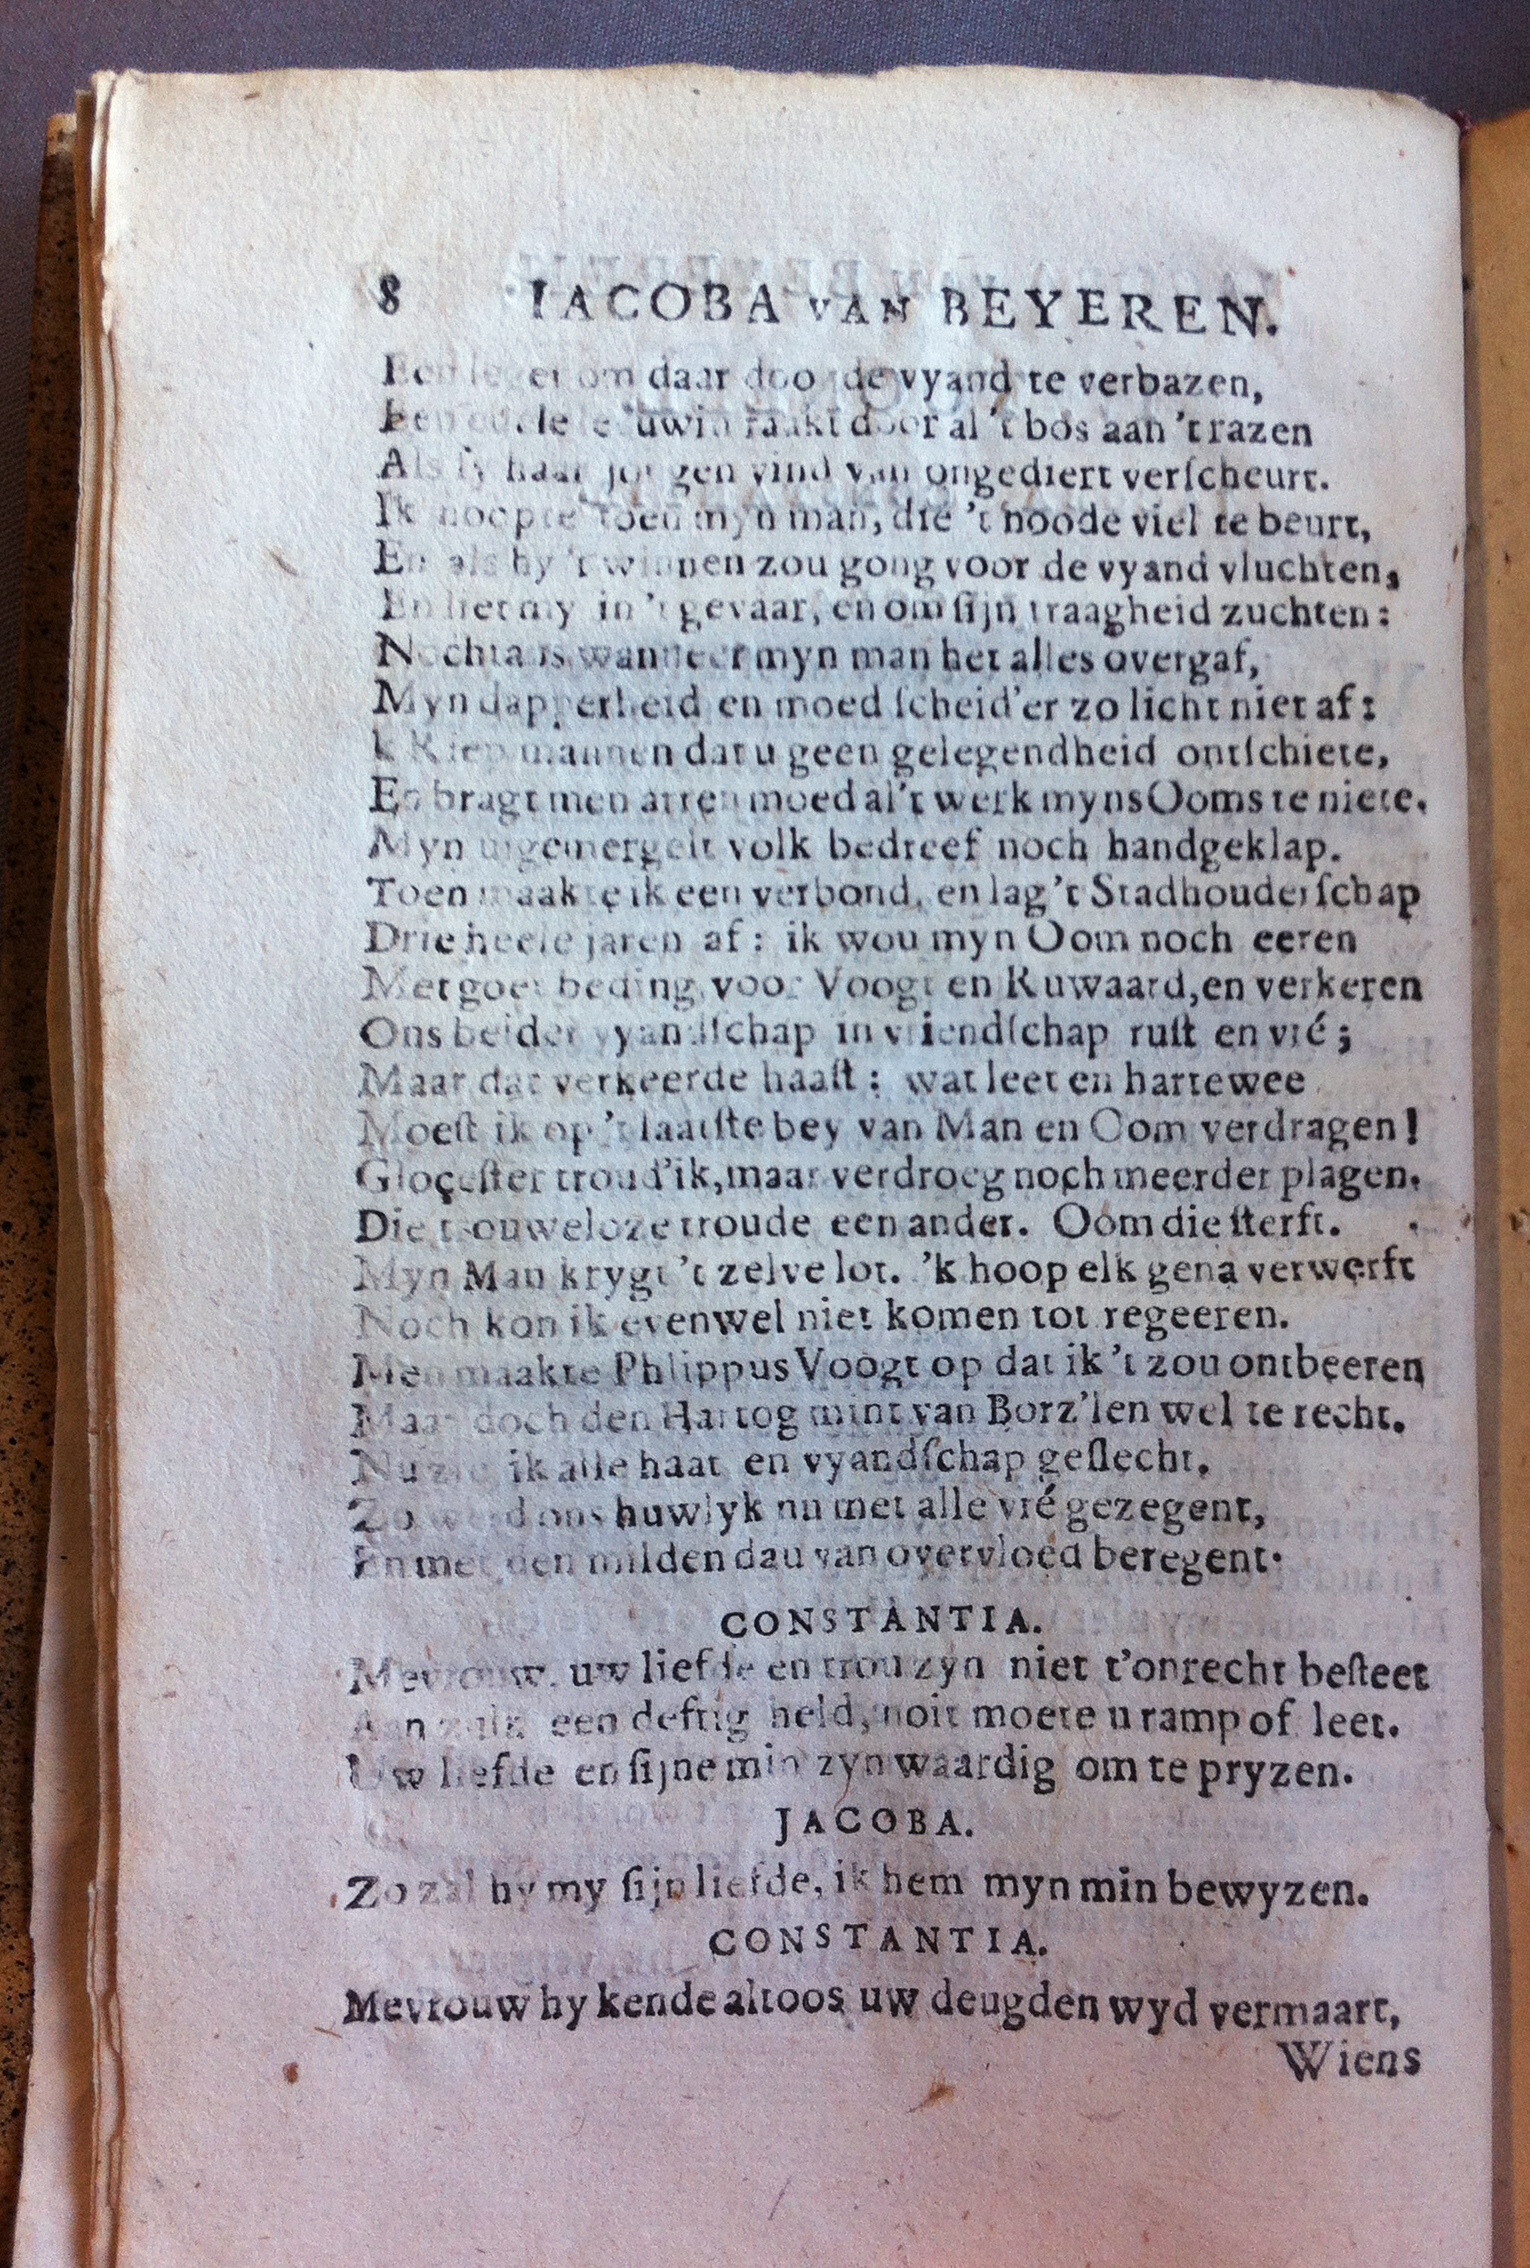 8 IACOBA VAN BEYEREN.
Een leger om daar door de vyand te verbazen,
Een edele leeuwin raakt door al 't bos aan 't razen
Als ſy haar jongen vind van ongediert verſcheurt.
Ik noopte toen myn man, die 't noode viel te beurt,
En als hy 't winnen zou gong voor de vyand vluchten,
En liet my in 't gevaar, en om ſijn traagheid zuchten:
Nochtans wanneer myn man het alles overgaf,
Myn dapperheid en moed ſcheid'er zo licht niet af:
k Riep mannen dat u geen gelegendheid ontſchiete,
Eo bragt men arren moed al't werk myns Ooms te niete.
Myn uigemergelt volk bedreef noch handgeklap.
Toen maakte ik een verbond, en lag 't Stadhouderſchap
Drie heele jaren af: ik wou myn Oom noch eeren
Met goet beding voor Voogt en Ruwaard, en verkeren
Ons beider vyandſchap in vriendſchap ruſt en vré;
Maar dat verkeerde haaſt: wat leet en hartewee
Moeſt ik op 't laatſte bey van Man en Oom verdragen!
Gloçeſter troud'ik, maar verdroeg noch meerder plagen.
Die trouweloze troude een ander. Oom die ſterft.
Myn Man krygt 't zelve lot. 'k hoop elk gena verwerft
Noch kon ik evenwel niet komen tot regeeren.
Men maakte Phlippus Voogt op dat ik 't zou ontbeeren
Maar doch den Hartog mint van Borz'len wel te recht.
Nu zie ik alle haat en vyandſchap geſlecht.
Zo werd ons huwlyk nu met alle vré gezegent,
En met den milden dau van overvloed beregent.
CONSTANTIA.
Mevrouw, uw liefde en trou zyn niet t'onrecht beſteet
Aan zulk een deftig held, noit moete u ramp of leet.
Uw liefde en ſijne min zyn waardig om te pryzen.
JACOBA.
Zo zal hy my ſijn liefde, ik hem myn min bewyzen.
CONSTANTIA.
Mevrouw hy kende altoos uw deugden wyd vermaart,
Wiens